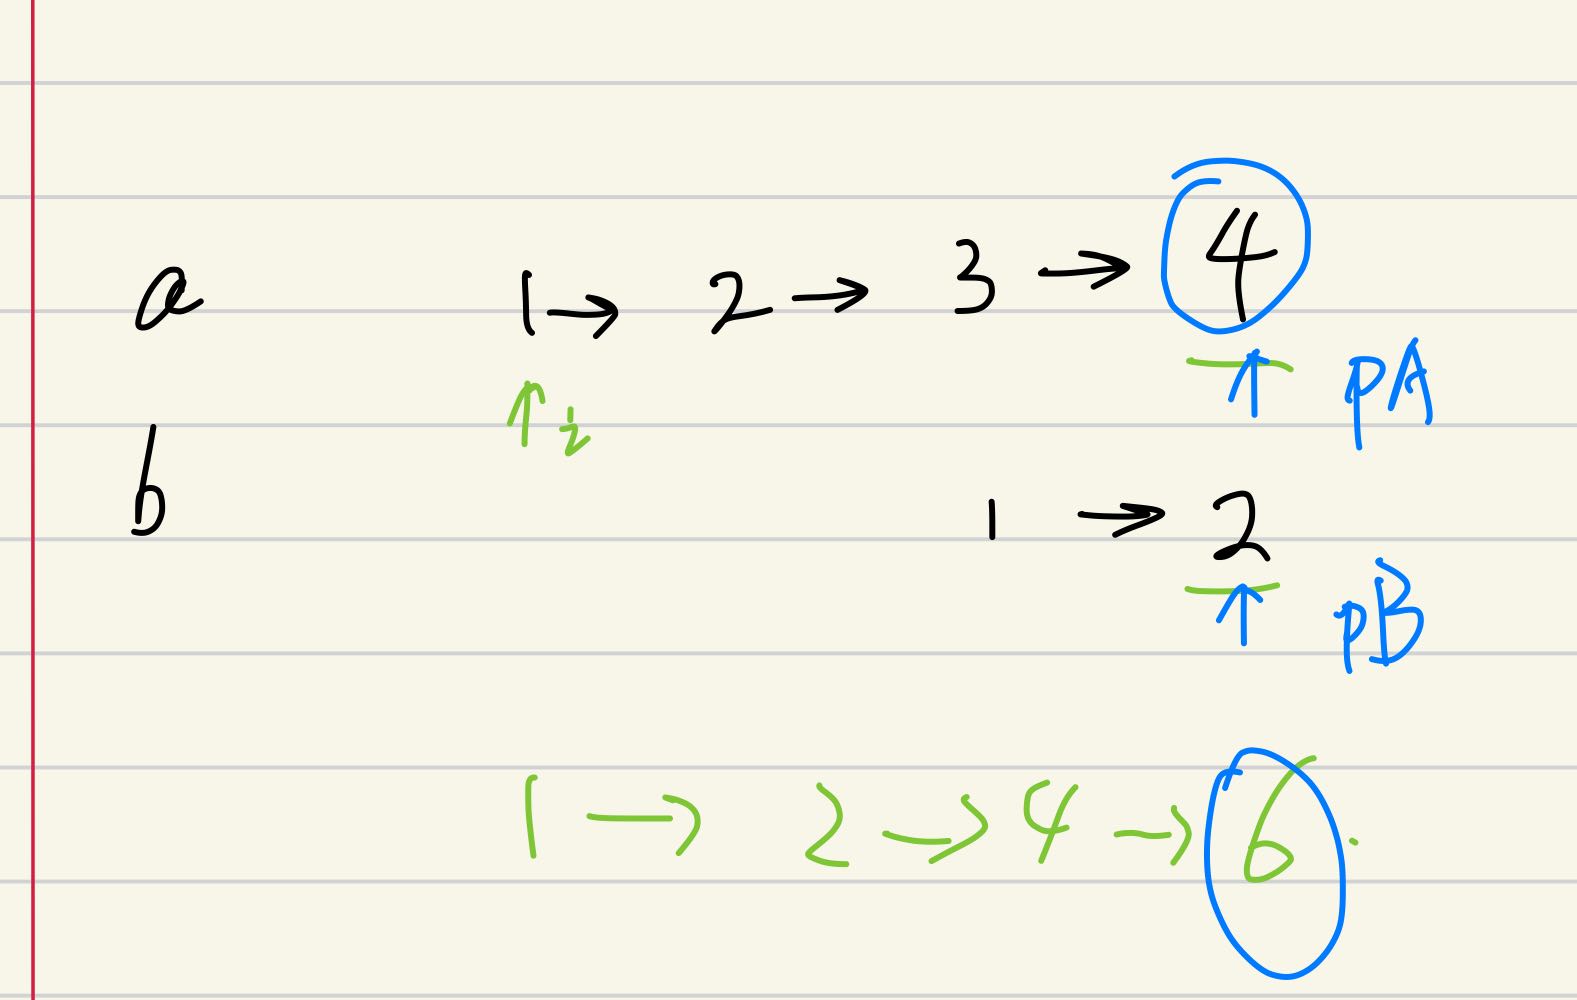 a 1 → 2 → 3 → 4
↑ ↑ pA
b 1 → 2
↑ pB
1 → 2 → 4 → 6